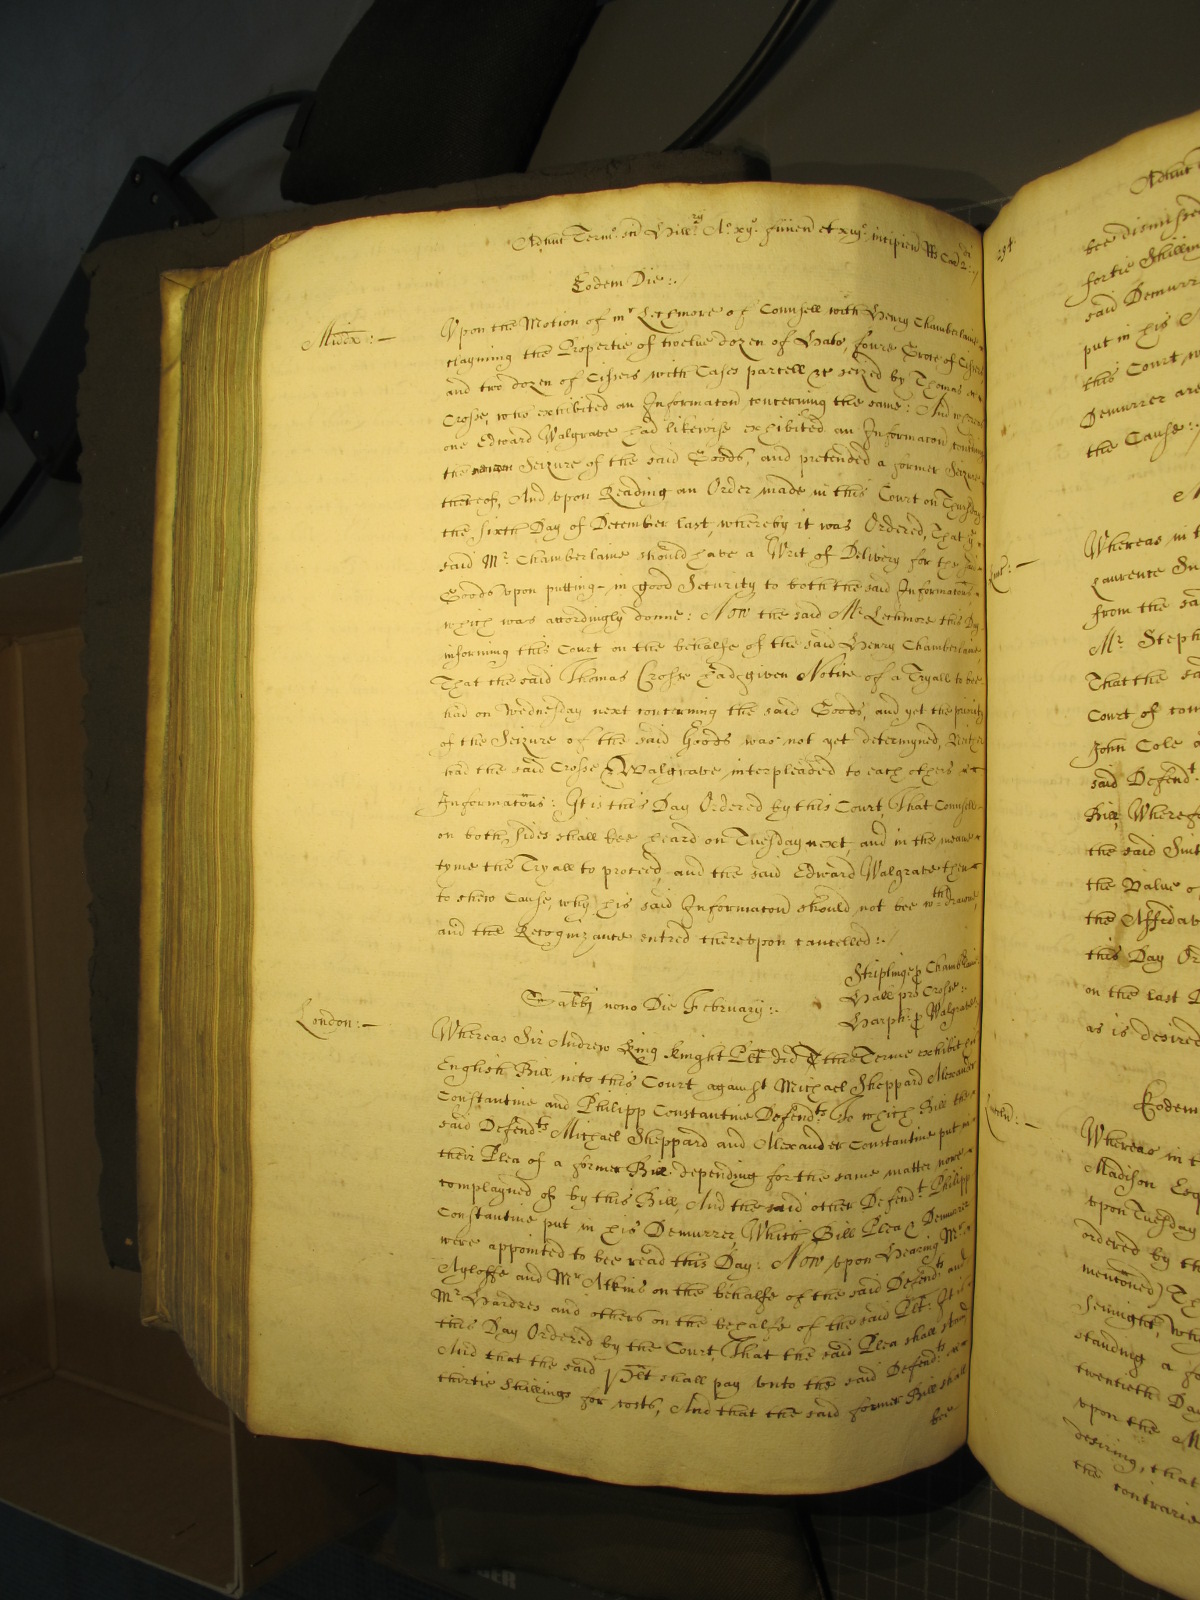 Adhuc Term: Sti Hill:ry Ao. xvo. finien et xvjo. incipien Rs Car: 2di:
Eodem Die:.
Midd̄x:—
Upon the Motion of mr Lechmore of Counsell with Henry Chamberlaine
clayming the Propertie of twelve dozen of Hats, foure Grose of Cissers
and two dozen of Cissers with Cases parcell &c seized by Thomas
Crosse, who exhibited an Informacon concerning the same: And whereas
one Edward Walgrave had likewise exhibited an Informacon touching
the Seizure of the said Goods, and pretended a former Seizure
thereof, And upon Reading an Order made in this Court on Thursday
the sixth Day of December last, whereby it was Ordered, That ye
said Mr. Chamberlaine should have a Writ of Delivery for the said
Goods upon putting in good Security to both the said Informacons,
which was accordingly donne: Now the said Mr Lechmore this Day
informing this Court on the behalfe of the said Henry Chamberlaine,
That the said Thomas Crosse had given Notice of a Tryall to bee
had on Wednesday next concerning the said Goods, and yet the priority
of the Seizure of the said Goods was not yet determyned, Neither
had the said Crosse & Walgrave interpleaded to each others
Informacons: It is this Day Ordered by this Court, That Counsell
on both sides shall bee heard on Tuesday next, and in the meane
tyme the Tryall to proceed, and the said Edward Walgrave then
to shew Cause, why his said Informacon should not bee wthdrawne,
and the Recognizance entred thereupon cancelled:.
Striplinge p Chamb̄laine
Hall pro Crosse:
Harph: p Walgrave
Sab̄b̄i nono Die February:.
London:—
Whereas Sir Andrew King Knight Plt did this Terme exhibit his
English Bill into this Court against Michael Sheppard Alexander
Constantine and Philipp Constantine Defendts. To which Bill the
said Defendts Michael Sheppard and Alexander Constantine put in
their Plea of a former Bill depending for the same matter nowe
complayned of by this Bill, And the said other Defendt Philipp
Constantine put in his Demurrer, Which Bill Plea & Demurrer
were appointed to bee read this Day: Now upon Hearing Mr
Ayloffe and Mr Atkins on the behalfe of the said Defendts and
Mr Hardres and others on the behalfe of the said Plt: It is
this Day Ordered by the Court, That the said Plea shall stand
And that the said Plt shall pay unto the said Defendts
thirtie Shillings for costs, And that the said former Bill shall
bee
Adhuc
bee dismissed
fortie Shillin
said Demurr
put in his
this Court w
Demurrer are
the Cause:.
Whereas in t
Laurence
from the sa
Mr. Steph
That the sa
Court of com
John Cole
said Defendt.
Bill, Wheref
the said Suit
the Value o
the Affidav
this Day Or
on the last
as is desired
Eodem
Whereas in t
Madison Esq
upon Tuesday
ordered by th
menconed) Th
Sennight, Whi
standing a fo
twentieth Day
upon the M
desiring, that
the contrarie